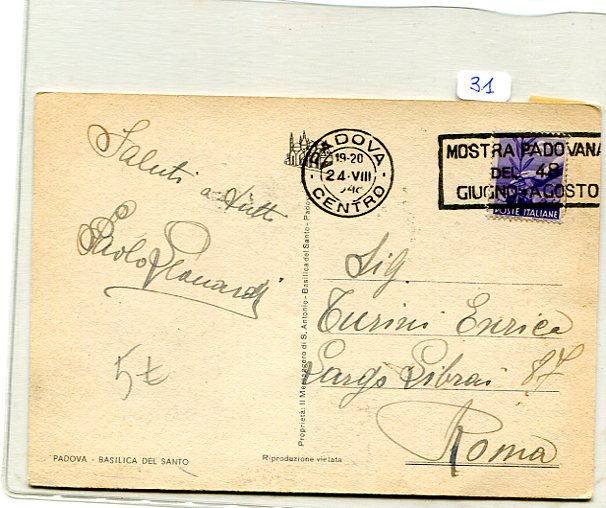 31
PADOVA
19-20
24-VIII
CENTRO
MOSTRA PADOVANA
DEL 48
GIUGNO-AGOSTO
POSTE ITALIANE
Saluti a tutti
Paolo
5
Sig.
Turini Enrica
Largo Librai 87
Roma
Proprietà: Il Messaggero di S. Antonio - Basilica del Santo - Padova
PADOVA - BASILICA DEL SANTO
Riproduzione vietata